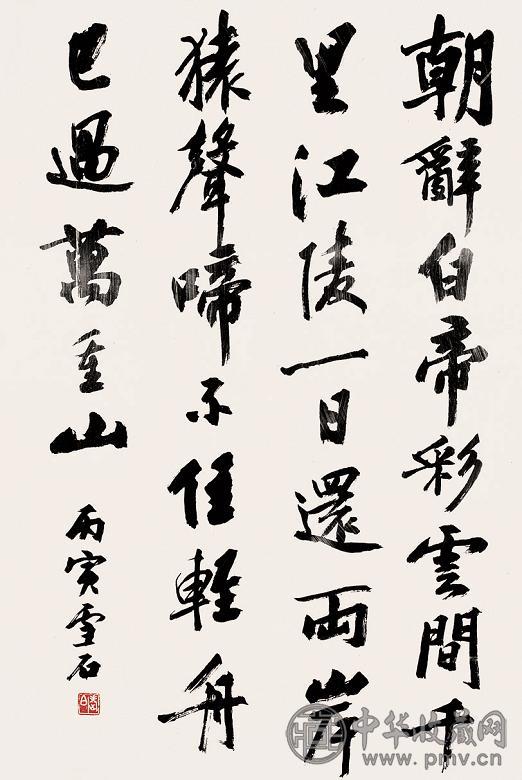 朝辭白帝彩雲間千
里江陵一日還兩岸
猿聲啼不住輕舟
已過萬重山
丙寅雪石
中华收藏网
www.pmv.cn